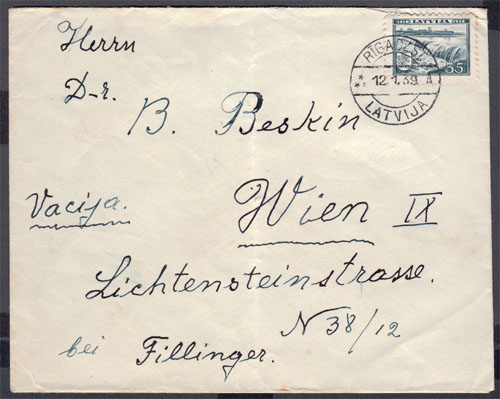 LATVIJA
35
RĪGA
12.1.39. A
LATVIJA
Herrn
D-r.
B. Beskin
Vacija.
Wien IX
Lichtensteinstrasse.
N 38/12
bei Fillinger.